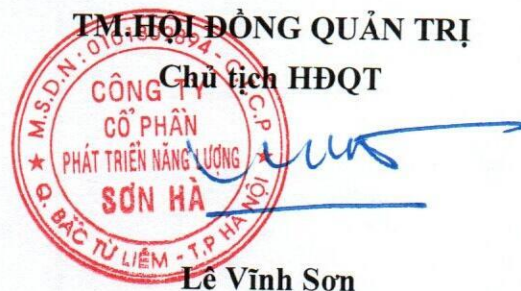 TM.HỘI ĐỒNG QUẢN TRỊ
Chủ tịch HĐQT
CÔNG TY
CỔ PHẦN
PHÁT TRIỂN NĂNG LƯỢNG
SƠN HÀ
Q. BẮC TỪ LIÊM - T.P HÀ NỘI
Lê Vĩnh Sơn